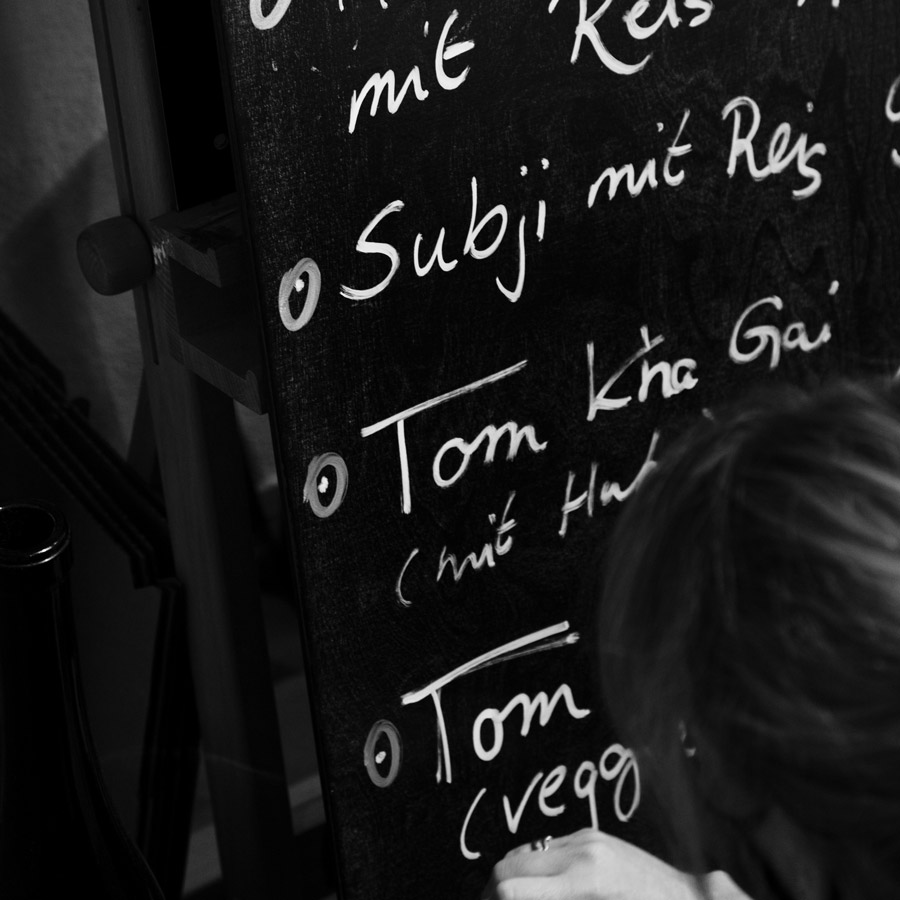 mit Reis
Subji mit Reis
Tom Kha Gai
(mit
Tom
(vegg